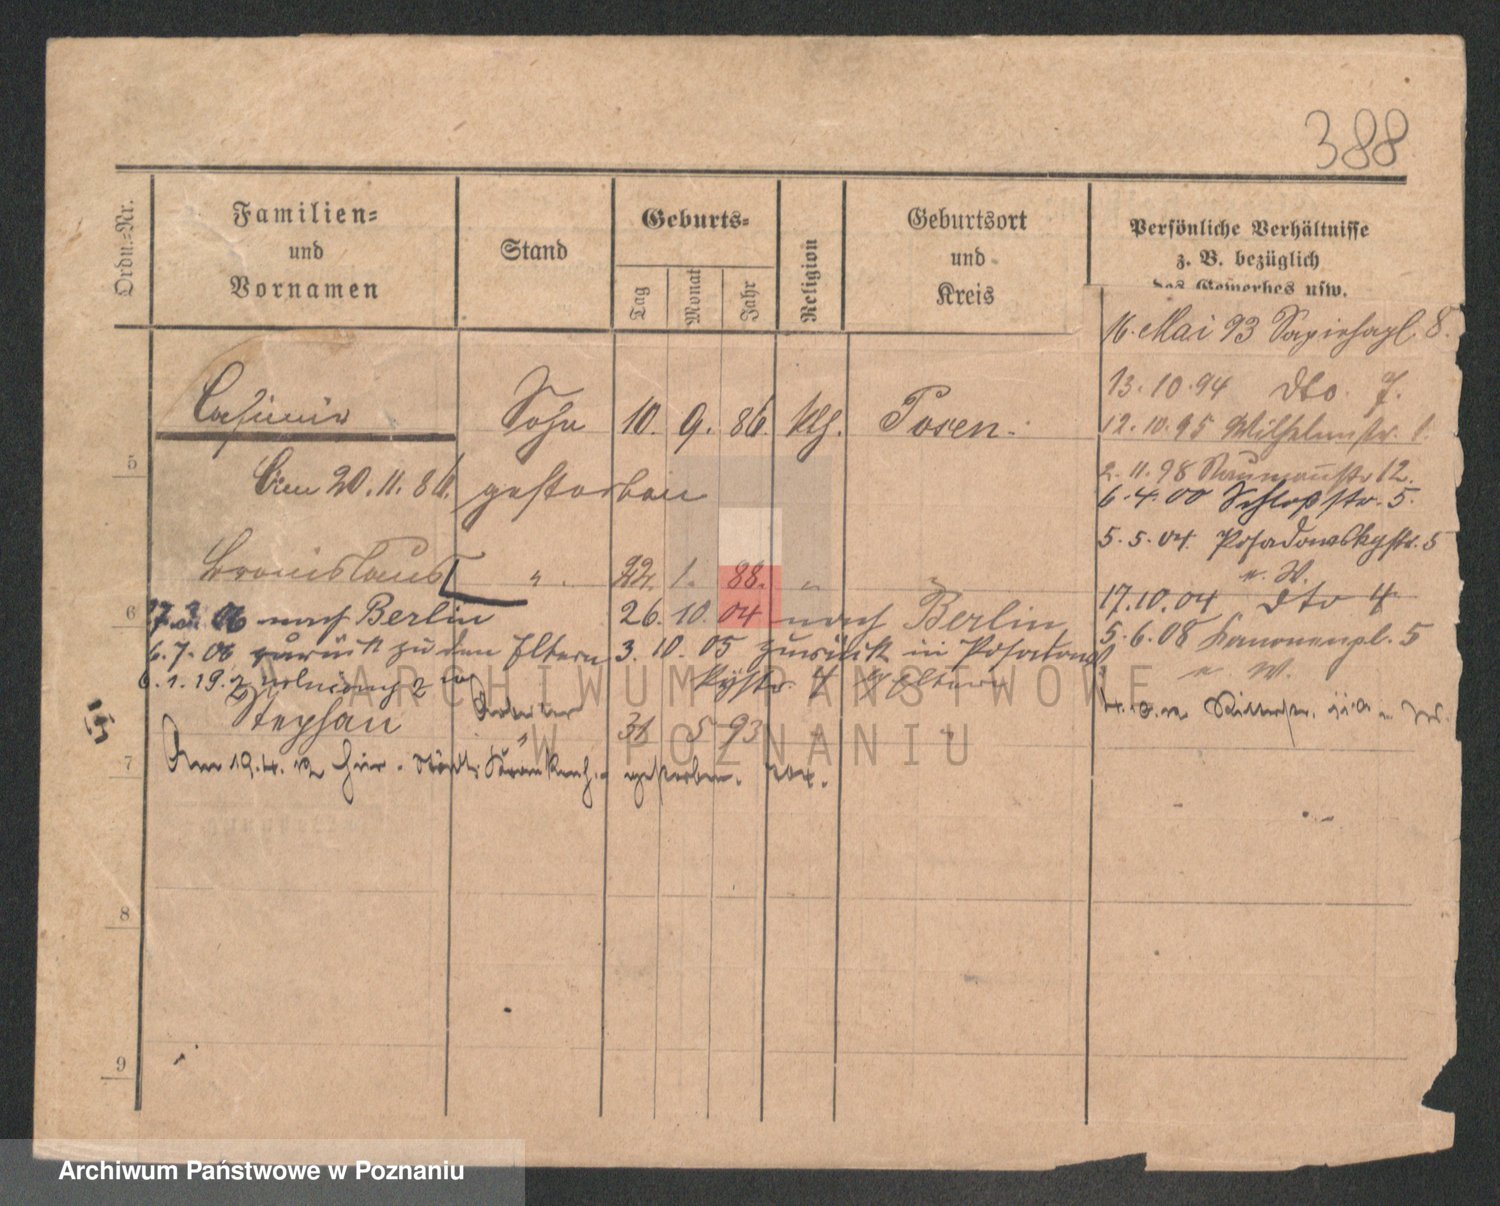 388
Ordn.-Nr.
Familien-
und
Vornamen
Stand
Geburts-
Tag
Monat
Jahr
Religion
Geburtsort
und
Kreis
Persönliche Verhältnisse
z. B. bezüglich
des Gewerbes usw.
16. Mai 93 Sapiehapl. 8.
13. 10. 94 dto. 7.
12. 10. 95 Wilhelmstr.
2. 11. 98 Naumannstr 12.
6. 4. 00 Schloßstr. 5.
5. 5. 04 Posadowskystr. 5
n. W.
17. 10. 04 dto 4
5. 6. 08 Kanonenpl. 5
n. W.
Casimir Sohn 10. 9. 86. kth. Posen.
5
Am 20. 11. 86. gestorben
Bronislaus " 22. 1. 88. "
6
17. 3. 06 nach Berlin 26. 10. 04 nach Berlin
6. 7. 06 zurück zu den Eltern 3. 10. 05 zurück in Posadows
kystr. 4 Eltern
6. 1. 19.
Stephan 31 5 93 "
7
Am 19. 4. 12 hier. Städt. Krankenh. gestorben.
8
9
ARCHIWUM PAŃSTWOWE
W POZNANIU
Archiwum Państwowe w Poznaniu